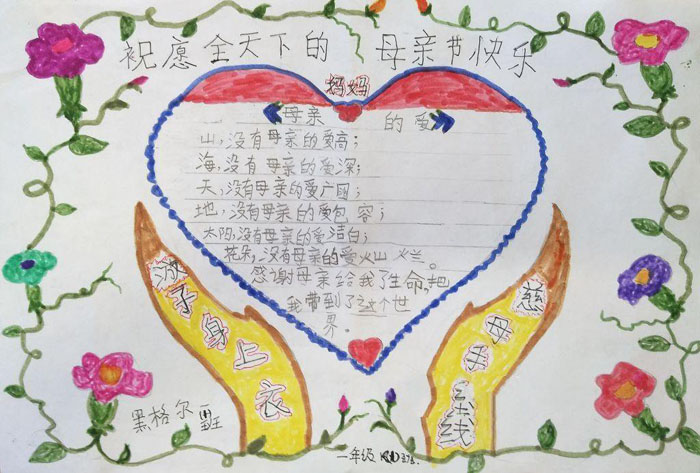 祝愿全天下的 母亲节快乐
妈妈
母亲 的爱
山,没有母亲的爱高;
海,没有母亲的爱深;
天,没有母亲的爱广阔;
地,没有母亲的爱包容;
太阳,没有母亲的爱洁白;
花朵,没有母亲的爱灿烂。
感谢母亲给我了生命,把
我带到了这个世
界。
慈母手中线
游子身上衣
黑格尔
一年级